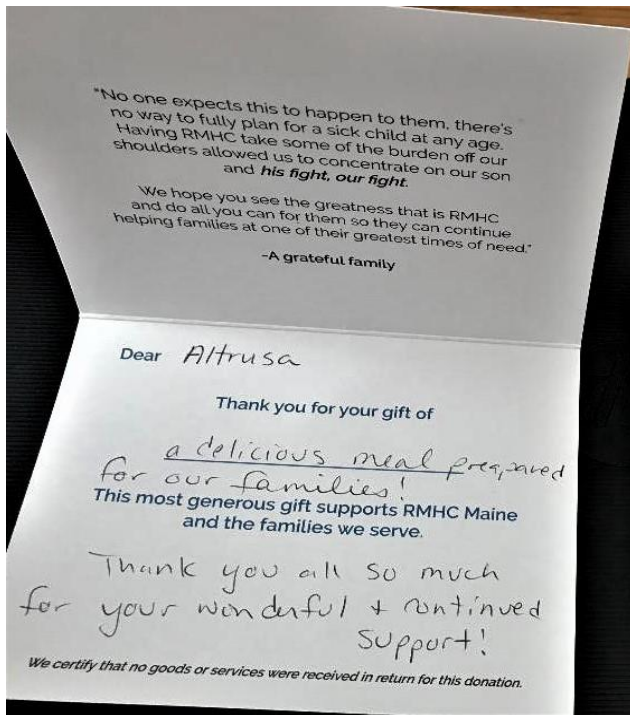 "No one expects this to happen to them, there's
no way to fully plan for a sick child at any age.
Having RMHC take some of the burden off our
shoulders allowed us to concentrate on our son
and his fight, our fight.
We hope you see the greatness that is RMHC
and do all you can for them so they can continue
helping families at one of their greatest times of need."
-A grateful family
Dear Altrusa
Thank you for your gift of
a delicious meal prepared
for our families!
This most generous gift supports RMHC Maine
and the families we serve.
Thank you all so much
for your wonderful + continued
support!
We certify that no goods or services were received in return for this donation.